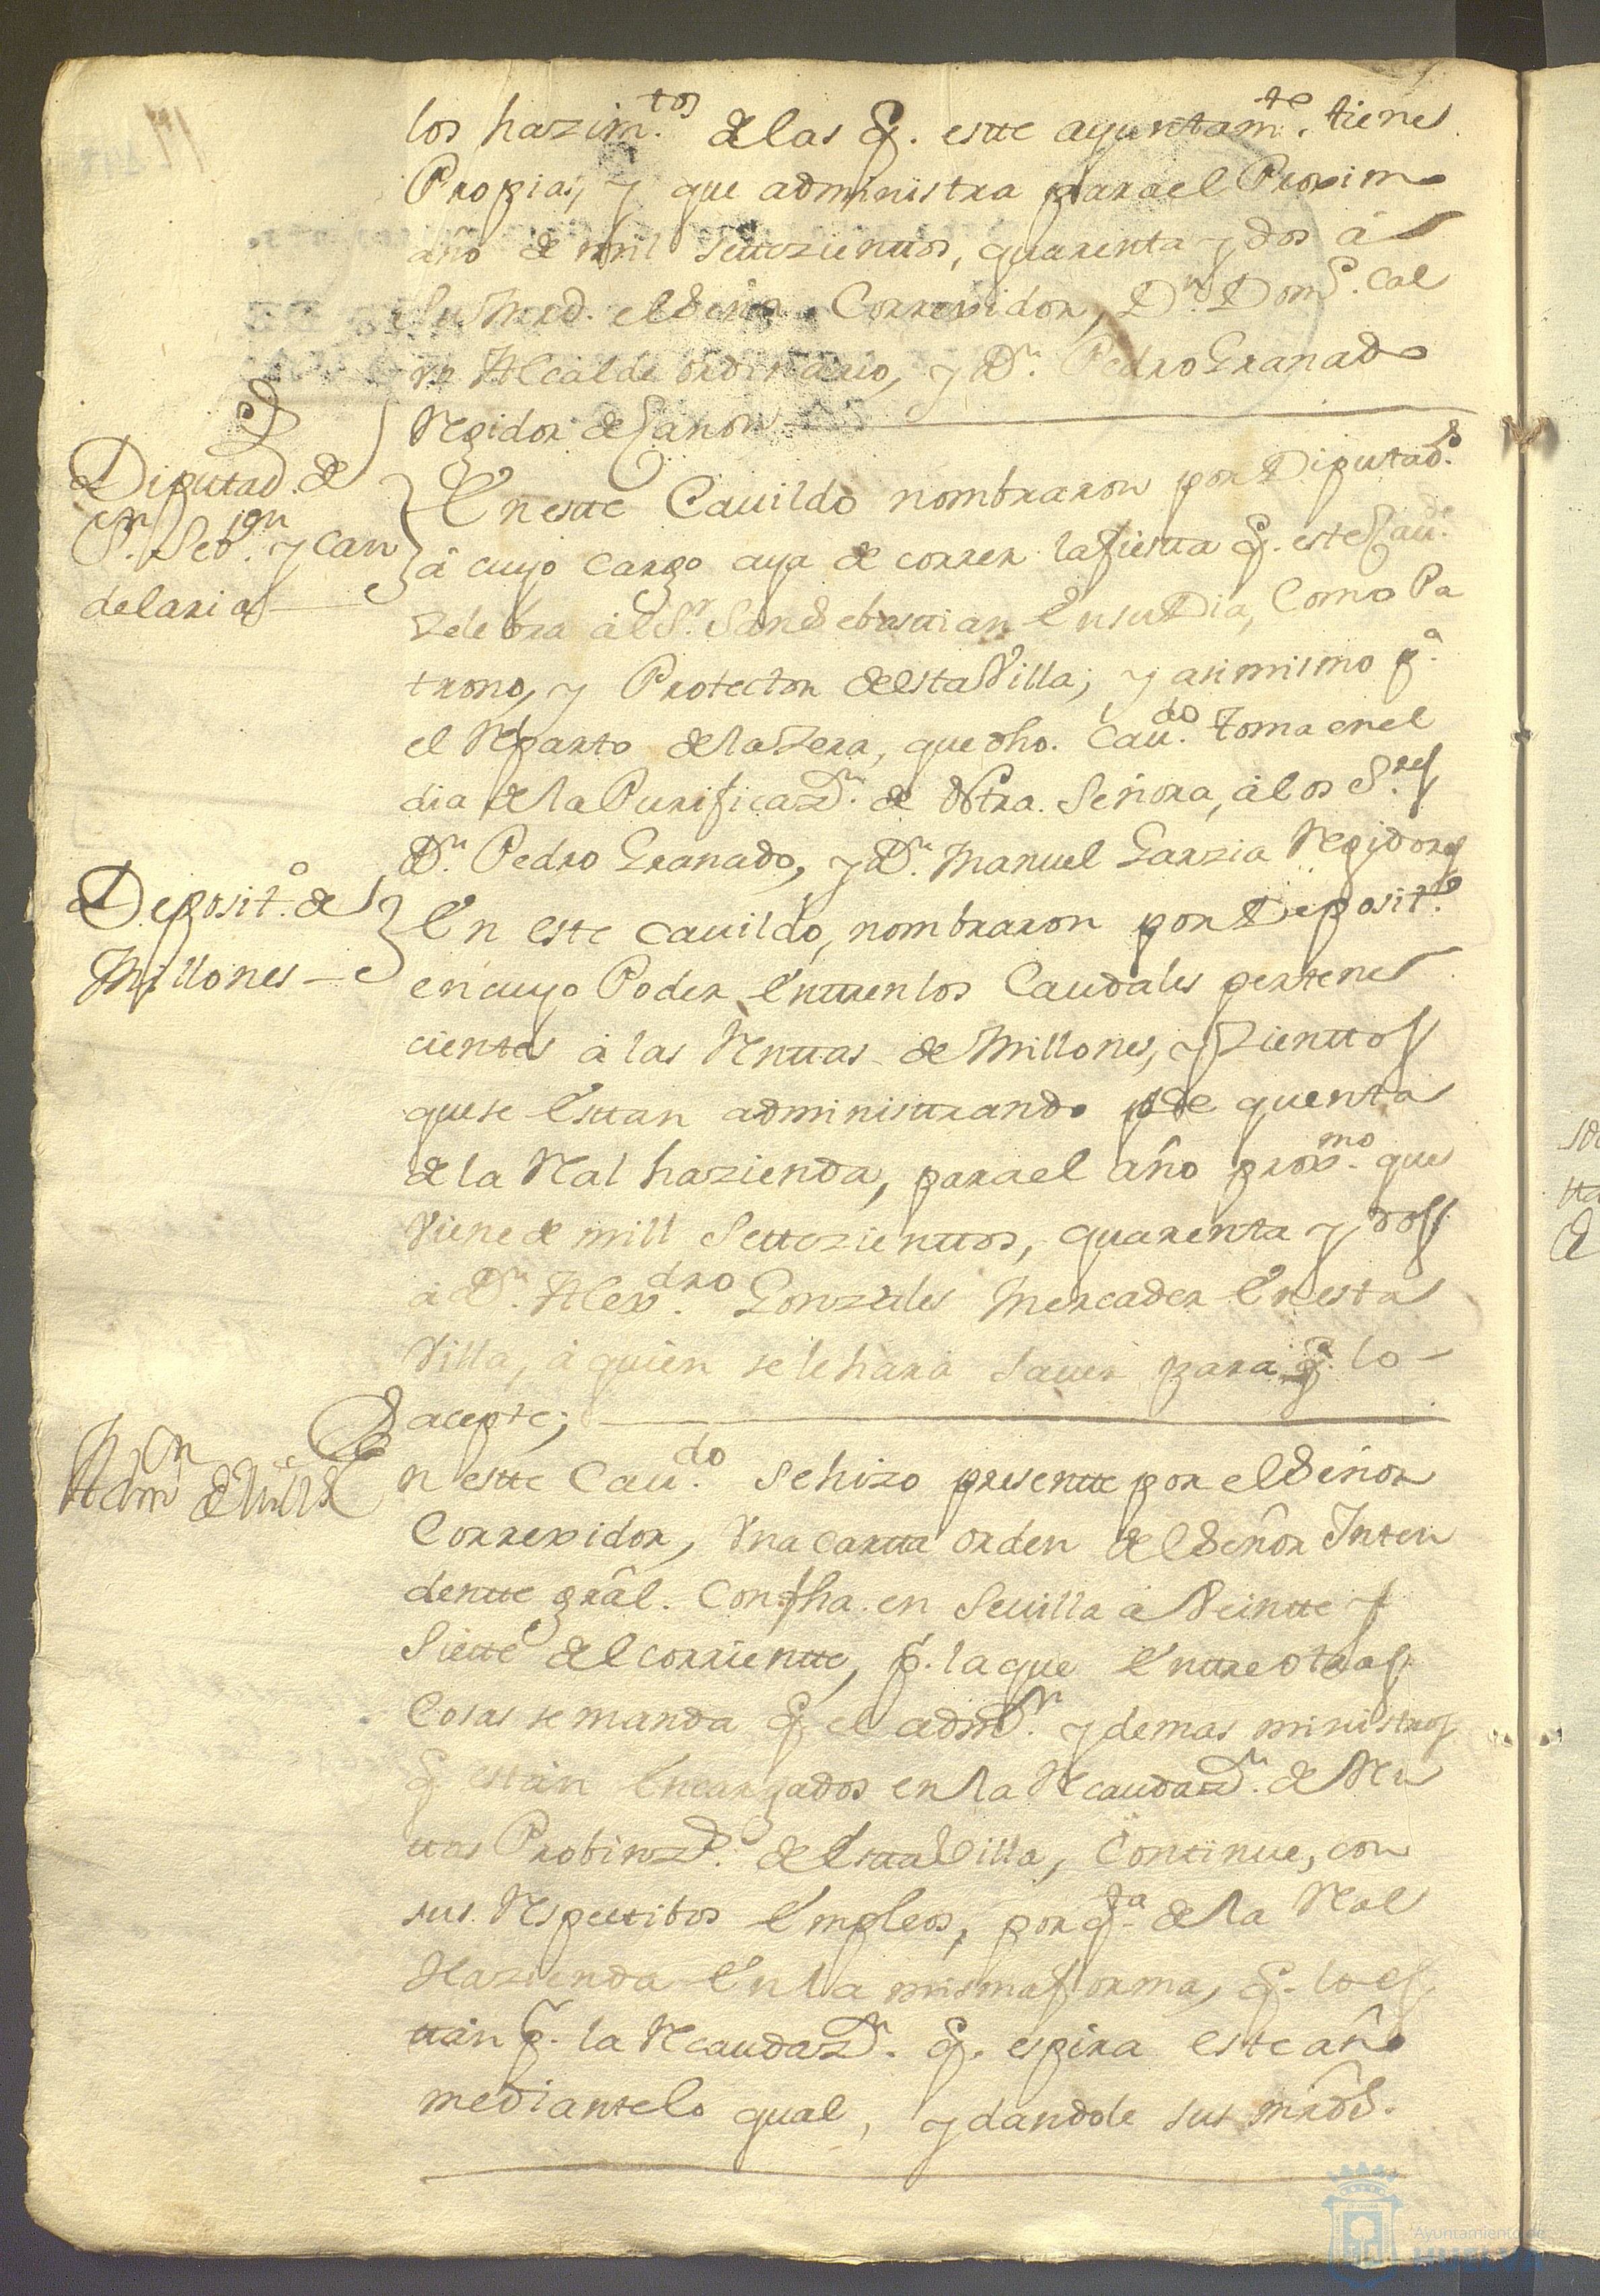 los hazim.tos de las q. este ayuntam.te tiene
Propias, y que administra para el Proximo
año de mil settezienttos, quarenta y dos â
su Mrd. el Señor Correxidor, Dn. Domo. Cal
vo Alcalde ordinario, y Dn. Pedro Granado
Regidor de Canon
Diputad. de
Sn. Sebn. y Can
delaria
En este Cauildo nombraron por Diputados.
â cuyo cargo aya de correr la fiesta q. este Caude.
Zelebra âl Sr. San Sebasttian En su Dia, Como Pa
trono, y Protector desta Villa; y asimismo pa.
el Reparto de la Zera, que dho. Cau.do toma en el
dia de la Purificazn. de Ntra. Señora, â los S.res
Dn. Pedro Granado, y Dn. Manuel Garzia Regidores
Deposit.o de
Millones
En este Cauildo, nombraron por Deposit.o
en cuyo Poder Enttren los Caudales pertene
cientes â las Renttas de Millones, y Zienttos
que se Esttan administtrando de quenta
de la Ral hazienda, para el año prox.mo que
Viene de mill settezienttos, quarenta y dos
â Dn. Alex.dro Gonzales Mercader En esta
Villa, â quien se le hara sauer para q. lo
acepte;
Admon de Mills
En estte Cau.do se hizo presentte por el Señor
Correxidor, Vna cartta orden del Señor Inten
dentte gral. Con fha. en Seuilla â Veintte y
Siette del corrientte, p. la que Enttre otras
Cosas se manda q. el admor. y demas ministros
q. estàn Encargados en la Recaudazn. de Ren
ttas Probinzs. de Estta Villa, Continue, con
sus Respecttibos Empleos, por qta. de la Real
Hazienda En la misma forma, q. lo es
ttàn p. la Recaudazn. q. espira este año
mediante lo qual, y dandole sus mrds.
Ayuntamiento de
HUELVA